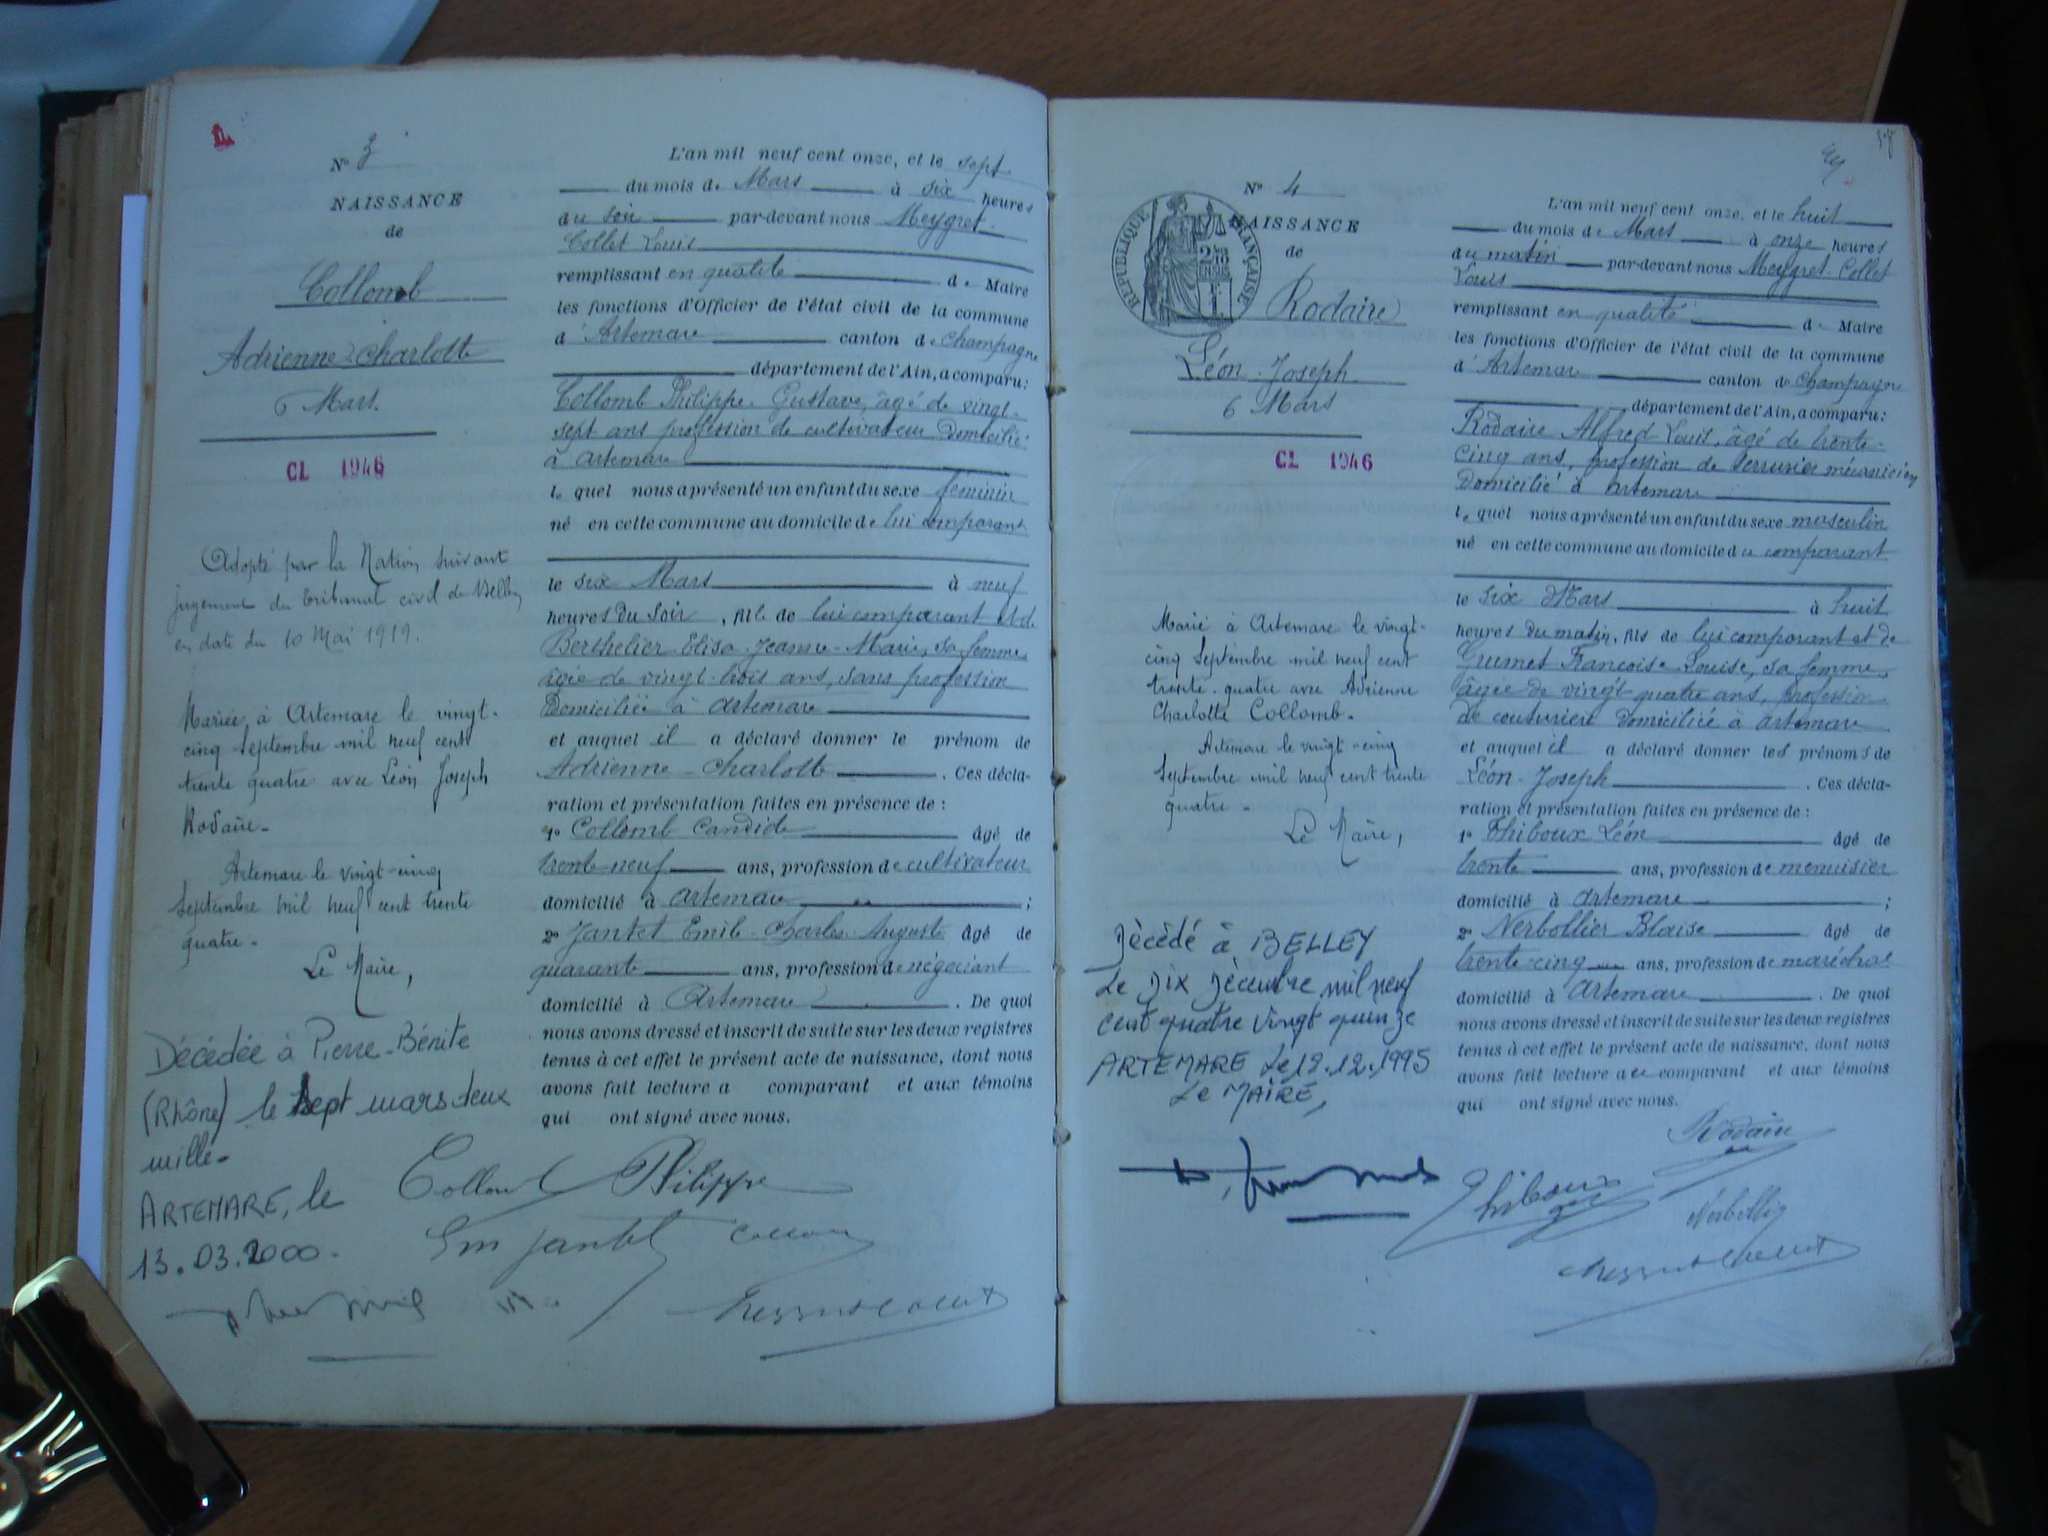 N° 3
NAISSANCE
de
Collomb
Adrienne-Charlotte
6 Mars.
CL 1946
Adopté par la Nation suivant
jugement du tribunal civil de Belley
en date du 10 Mai 1919.
Mariée à Artemare le vingt-
cinq septembre mil neuf cent
trente quatre avec Léon Joseph
Rodaire-
Artemare le vingt-cinq
septembre mil neuf cent trente
quatre-
Le Maire,
Décédée à Pierre-Bénite
(Rhône) le sept mars deux
mille-
ARTEMARE, le
13.03.2000-
L'an mil neuf cent onze, et le sept
du mois de Mars à six heures
du soir par-devant nous Meygret-
Collet Louis
remplissant en qualité de Maire
les fonctions d'Officier de l'état civil de la commune
d'Artemare canton de Champagne
département de l'Ain, a comparu:
Collomb Philippe-Gustave, âgé de vingt-
sept ans profession de cultivateur domicilié
à Artemare
lequel nous a présenté un enfant du sexe féminin
né en cette commune au domicile de lui comparant
le six Mars à neuf
heures du soir, fille de lui comparant et de
Berthelier Elisa-Jeanne-Marie, sa femme,
âgée de vingt-trois ans, sans profession
domiciliée à Artemare
et auquel il a déclaré donner le prénom de
Adrienne-Charlotte. Ces décla-
ration et présentation faites en présence de:
1° Collomb Candide âgé de
trente-neuf ans, profession de cultivateur
domicilié à Artemare;
2° Jantet Emile-Charles-Auguste âgé de
quarante ans, profession de négociant
domicilié à Artemare. De quoi
nous avons dressé et inscrit de suite sur les deux registres
tenus à cet effet le présent acte de naissance, dont nous
avons fait lecture a comparant et aux témoins
qui ont signé avec nous.
Collomb Philippe
Em Jantet
N° 4
RÉPUBLIQUE FRANÇAISE
NAISSANCE
de
Rodaire
Léon-Joseph
6 Mars
CL 1946
Marié à Artemare le vingt-
cinq septembre mil neuf cent
trente-quatre avec Adrienne
Charlotte Collomb-
Artemare le vingt-cinq
septembre mil neuf cent trente
quatre-
Le Maire,
Décédé à BELLEY
Le Dix Décembre mil neuf
cent quatre vingt quinze
ARTEMARE Le 12.12.1995
Le MAIRE,
L'an mil neuf cent onze, et le huit
du mois de Mars à onze heures
du matin par-devant nous Meygret-Collet
Louis
remplissant en qualité de Maire
les fonctions d'Officier de l'état civil de la commune
d'Artemare canton de Champagne
département de l'Ain, a comparu:
Rodaire Alfred-Louis, âgé de trente-
cinq ans, profession de serrurier mécanicien
domicilié à Artemare
lequel nous a présenté un enfant du sexe masculin
né en cette commune au domicile du comparant
le six Mars à huit
heures du matin, fils de lui comparant et de
Françoise-Louise, sa femme,
âgée de vingt quatre ans, profession
de couturière domiciliée à Artemare
et auquel il a déclaré donner les prénoms de
Léon-Joseph. Ces décla-
ration et présentation faites en présence de:
1° Thiboux Léon âgé de
trente ans, profession de menuisier
domicilié à Artemare;
2° Nerbollier Blaise âgé de
trente-cinq ans, profession de maréchal
domicilié à Artemare. De quoi
nous avons dressé et inscrit de suite sur les deux registres
tenus à cet effet le présent acte de naissance, dont nous
avons fait lecture au comparant et aux témoins
qui ont signé avec nous.
Rodaire
Thiboux
Nerbollier